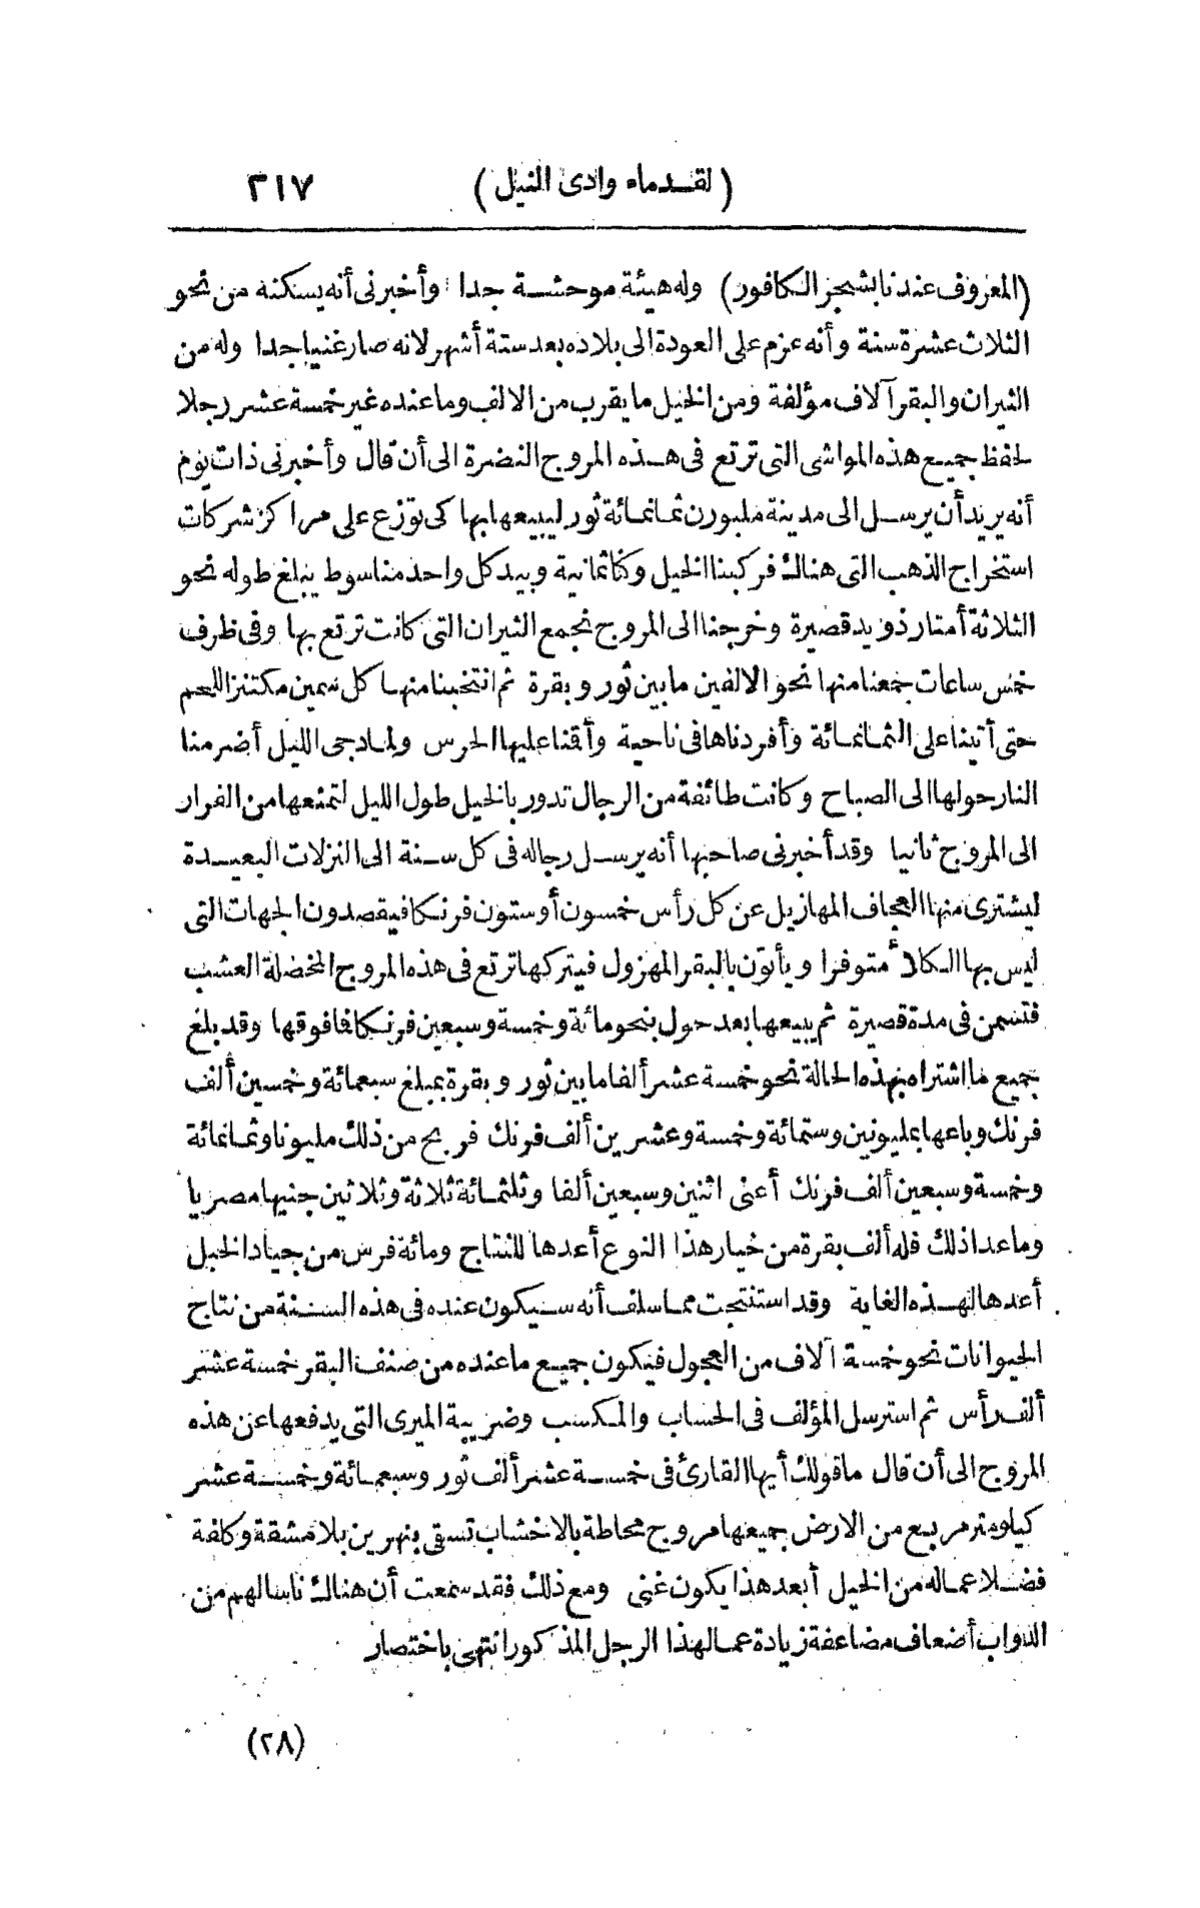 (لقدماء وادى النيل) ٢١٧
(المعروف عندنا بشجر الكافور) وله هيئة موحشة جدا وأخبرنى أنه يسكنه من نحو
الثلاث عشرة سنة وأنه عزم على العودة الى بلاده بعد ستة أشهر لانه صار غنيا جدا وله من
الثيران والبقر آلاف مؤلفة ومن الخيل ما يقرب من الالف وما عنده غير خمسة عشر رجلا
لحفظ جميع هذه المواشى التى ترتع فى هذه المروج النضرة الى أن قال وأخبرنى ذات يوم
أنه يريد أن يرسل الى مدينة ملبورن ثمانمائة ثور ليبيعها بها كى توزع على مراكز شركات
استخراج الذهب التى هناك فركبنا الخيل وكنا ثمانية وبيد كل واحد منا سوط يبلغ طوله نحو
الثلاثة أمتار ذو يد قصيرة وخرجنا الى المروج نجمع الثيران التى كانت ترتع بها وفى ظرف
خمس ساعات جمعنا منها نحو الالفين ما بين ثور وبقرة ثم انتخبنا منها كل سمين مكتنز اللحم
حتى أتينا على الثمانمائة وأفردناها فى ناحية وأقنا عليها الحرس ولما دجى الليل أضرمنا
النار حولها الى الصباح وكانت طائفة من الرجال تدور بالخيل طول الليل لتمنعها من الفرار
الى المروج ثانيا وقد أخبرنى صاحبها أنه يرسل رجاله فى كل سنة الى النزلات البعيدة
ليشترى منها العجاف المهازيل عن كل رأس خمسون أو ستون فرنكا فيقصدون الجهات التى
ليس بها الكلأ متوفرا ويأتون بالبقر المهزول فيتركها ترتع فى هذه المروج المخضلة العشب
فتسمن فى مدة قصيرة ثم يبيعها بعد حول بنحو مائة وخمسة وسبعين فرنكا فافوقها وقد بلغ
جميع ما اشتراه بهذه الحالة نحو خمسة عشر ألفا ما بين ثور وبقرة بمبلغ سبعمائة وخمسين ألف
فرنك وباعها بمليونين وستمائة وخمسة وعشرين ألف فرنك فربح من ذلك مليونا وثمانمائة
وخمسة وسبعين ألف فرنك أعنى اثنين وسبعين ألفا وثلثمائة ثلاثة وثلاثين جنيها مصريا
وما عدا ذلك فله ألف بقرة من خيار هذا النوع أعدها للنتاج ومائة فرس من جياد الخيل
أعدها لهذه الغاية وقد استنتجت مما سلف أنه سيكون عنده فى هذه السنة من نتاج
الحيوانات نحو خمسة آلاف من العجول فيكون جميع ما عنده من صنف البقر خمسة عشر
ألف رأس ثم استرسل المؤلف فى الحساب والمكسب وضريبة الميرى التى يدفعها عن هذه
المروج الى أن قال ما قولك أيها القارئ فى خمسة عشر ألف ثور وسبعمائة وخمسة عشر
كيلومتر مربع من الارض جميعها مروج محاطة بالاخشاب تسقى بنهرين بلا مشقة وكلفة
فضلا عماله من الخيل أبعد هذا يكون غنى ومع ذلك فقد سمعت أن هناك ناسا لهم من
الدواب أضعاف مضاعفة زيادة عما لهذا الرجل المذكور انتهى باختصار
(٢٨)